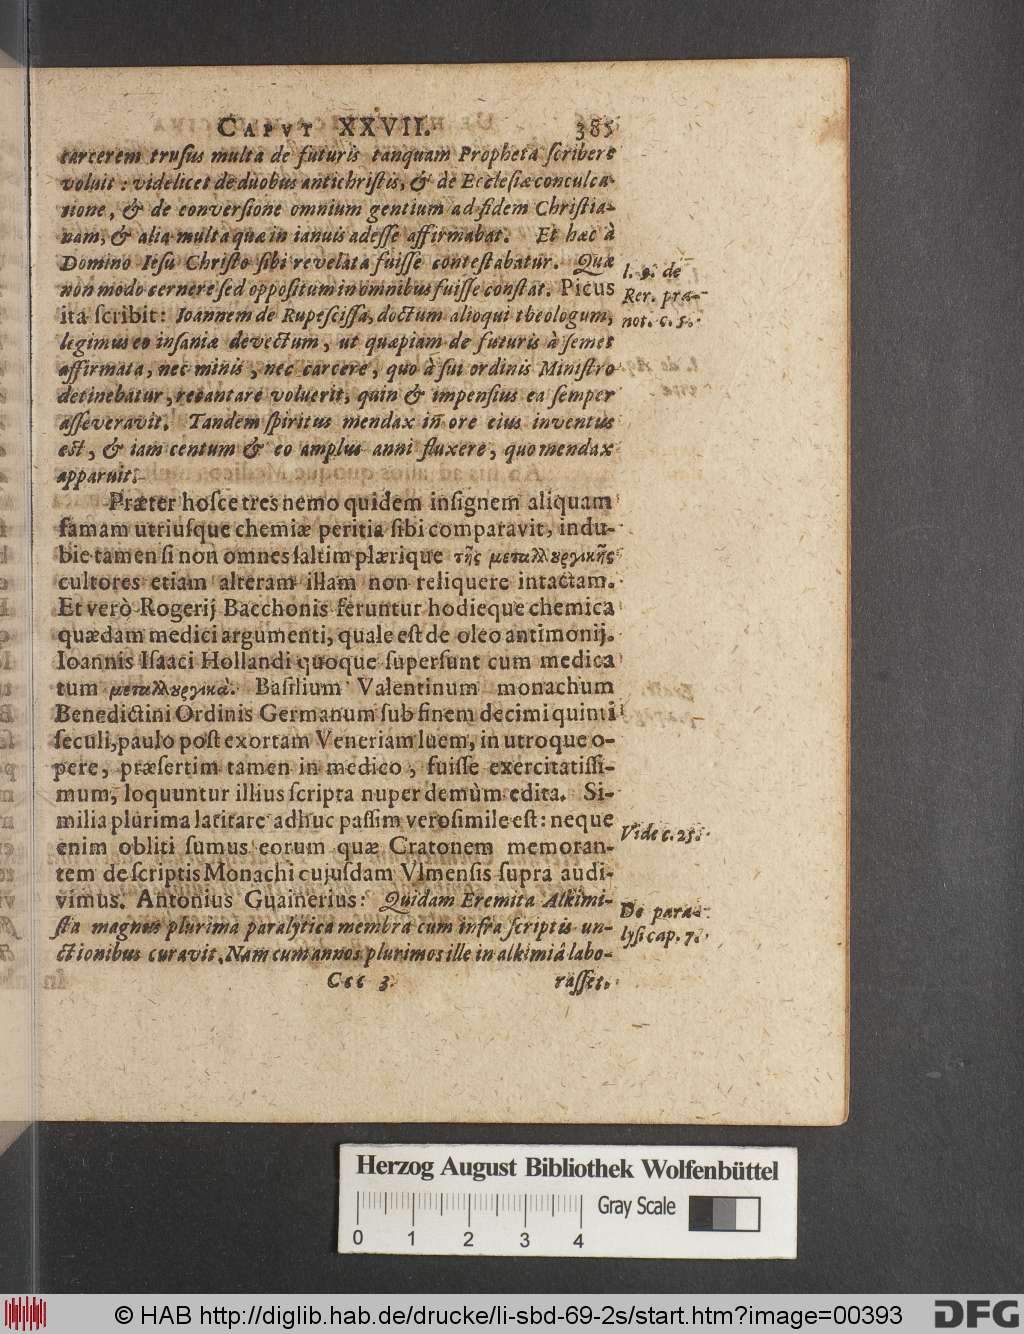 CAPVT XXVII. 385
carcerem trusus multa de futuris tanquam Propheta scribere
voluit: videlicet de duobus antichristis, & de Ecclesiæ conculca-
tione, & de conversione omnium gentium ad fidem Christia-
nam, & alia multa quæ in ianuis adesse affirmabat. Et hæc à
Domino Iesu Christo sibi revelata fuisse contestabatur. Quæ
non modo cernere sed oppositum in omnibus fuisse constat. Picus
ita scribit: Ioannem de Rupescissa, doctum alioqui theologum,
legimus eo insaniæ devectum, ut quæpiam de futuris à semet
affirmata, nec minis, nec carcere, quo à sui ordinis Ministro
detinebatur, recantare voluerit, quin & impensius ea semper
asseveravit. Tandem spiritus mendax in ore eius inventus
est, & iam centum & eo amplus anni fluxere, quo mendax
apparuit.
l. 9. de
Rer. præ-
not. c. 5.
Præter hosce tres nemo quidem insignem aliquam
famam utriusque chemiæ peritia sibi comparavit, indu-
bie tamen si non omnes saltim plærique τῆς μεταλλουργικῆς
cultores etiam alteram illam non reliquere intactam.
Et verò Rogerij Bacchonis feruntur hodieque chemica
quædam medici argumenti, quale est de oleo antimonij.
Ioannis Isaaci Hollandi quoque supersunt cum medica
tum μεταλλουργικά. Basilium Valentinum monachum
Benedictini Ordinis Germanum sub finem decimi quinti
seculi, paulo post exortam Veneriam luem, in utroque o-
pere, præsertim tamen in medico, fuisse exercitatissi-
mum, loquuntur illius scripta nuper demùm edita. Si-
milia plurima latitare adhuc passim verosimile est: neque
enim obliti sumus eorum quæ Cratonem memoran-
tem de scriptis Monachi cujusdam Vlmensis supra audi-
vimus. Antonius Guainerius: Quidam Eremita Alkimi-
sta magnus plurima paralytica membra cum infra scriptis un-
ctionibus curavit. Nam cum annos plurimos ille in alkimiâ labo-
Vide c. 25.
De para-
lysi cap. 7.
Ccc 3 rasset.
Herzog August Bibliothek Wolfenbüttel
Gray Scale
0 1 2 3 4
© HAB http://diglib.hab.de/drucke/li-sbd-69-2s/start.htm?image=00393
DFG